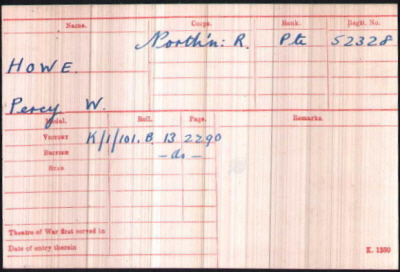 Name. Corps. Rank. Regtl. No.
North'n: R. Pte 52328
HOWE.
Percy W.
Medal. Roll. Page. Remarks.
Victory K/1/101.B. 13 2290
British -do-
Star
Theatre of War first served in
Date of entry therein K. 1380